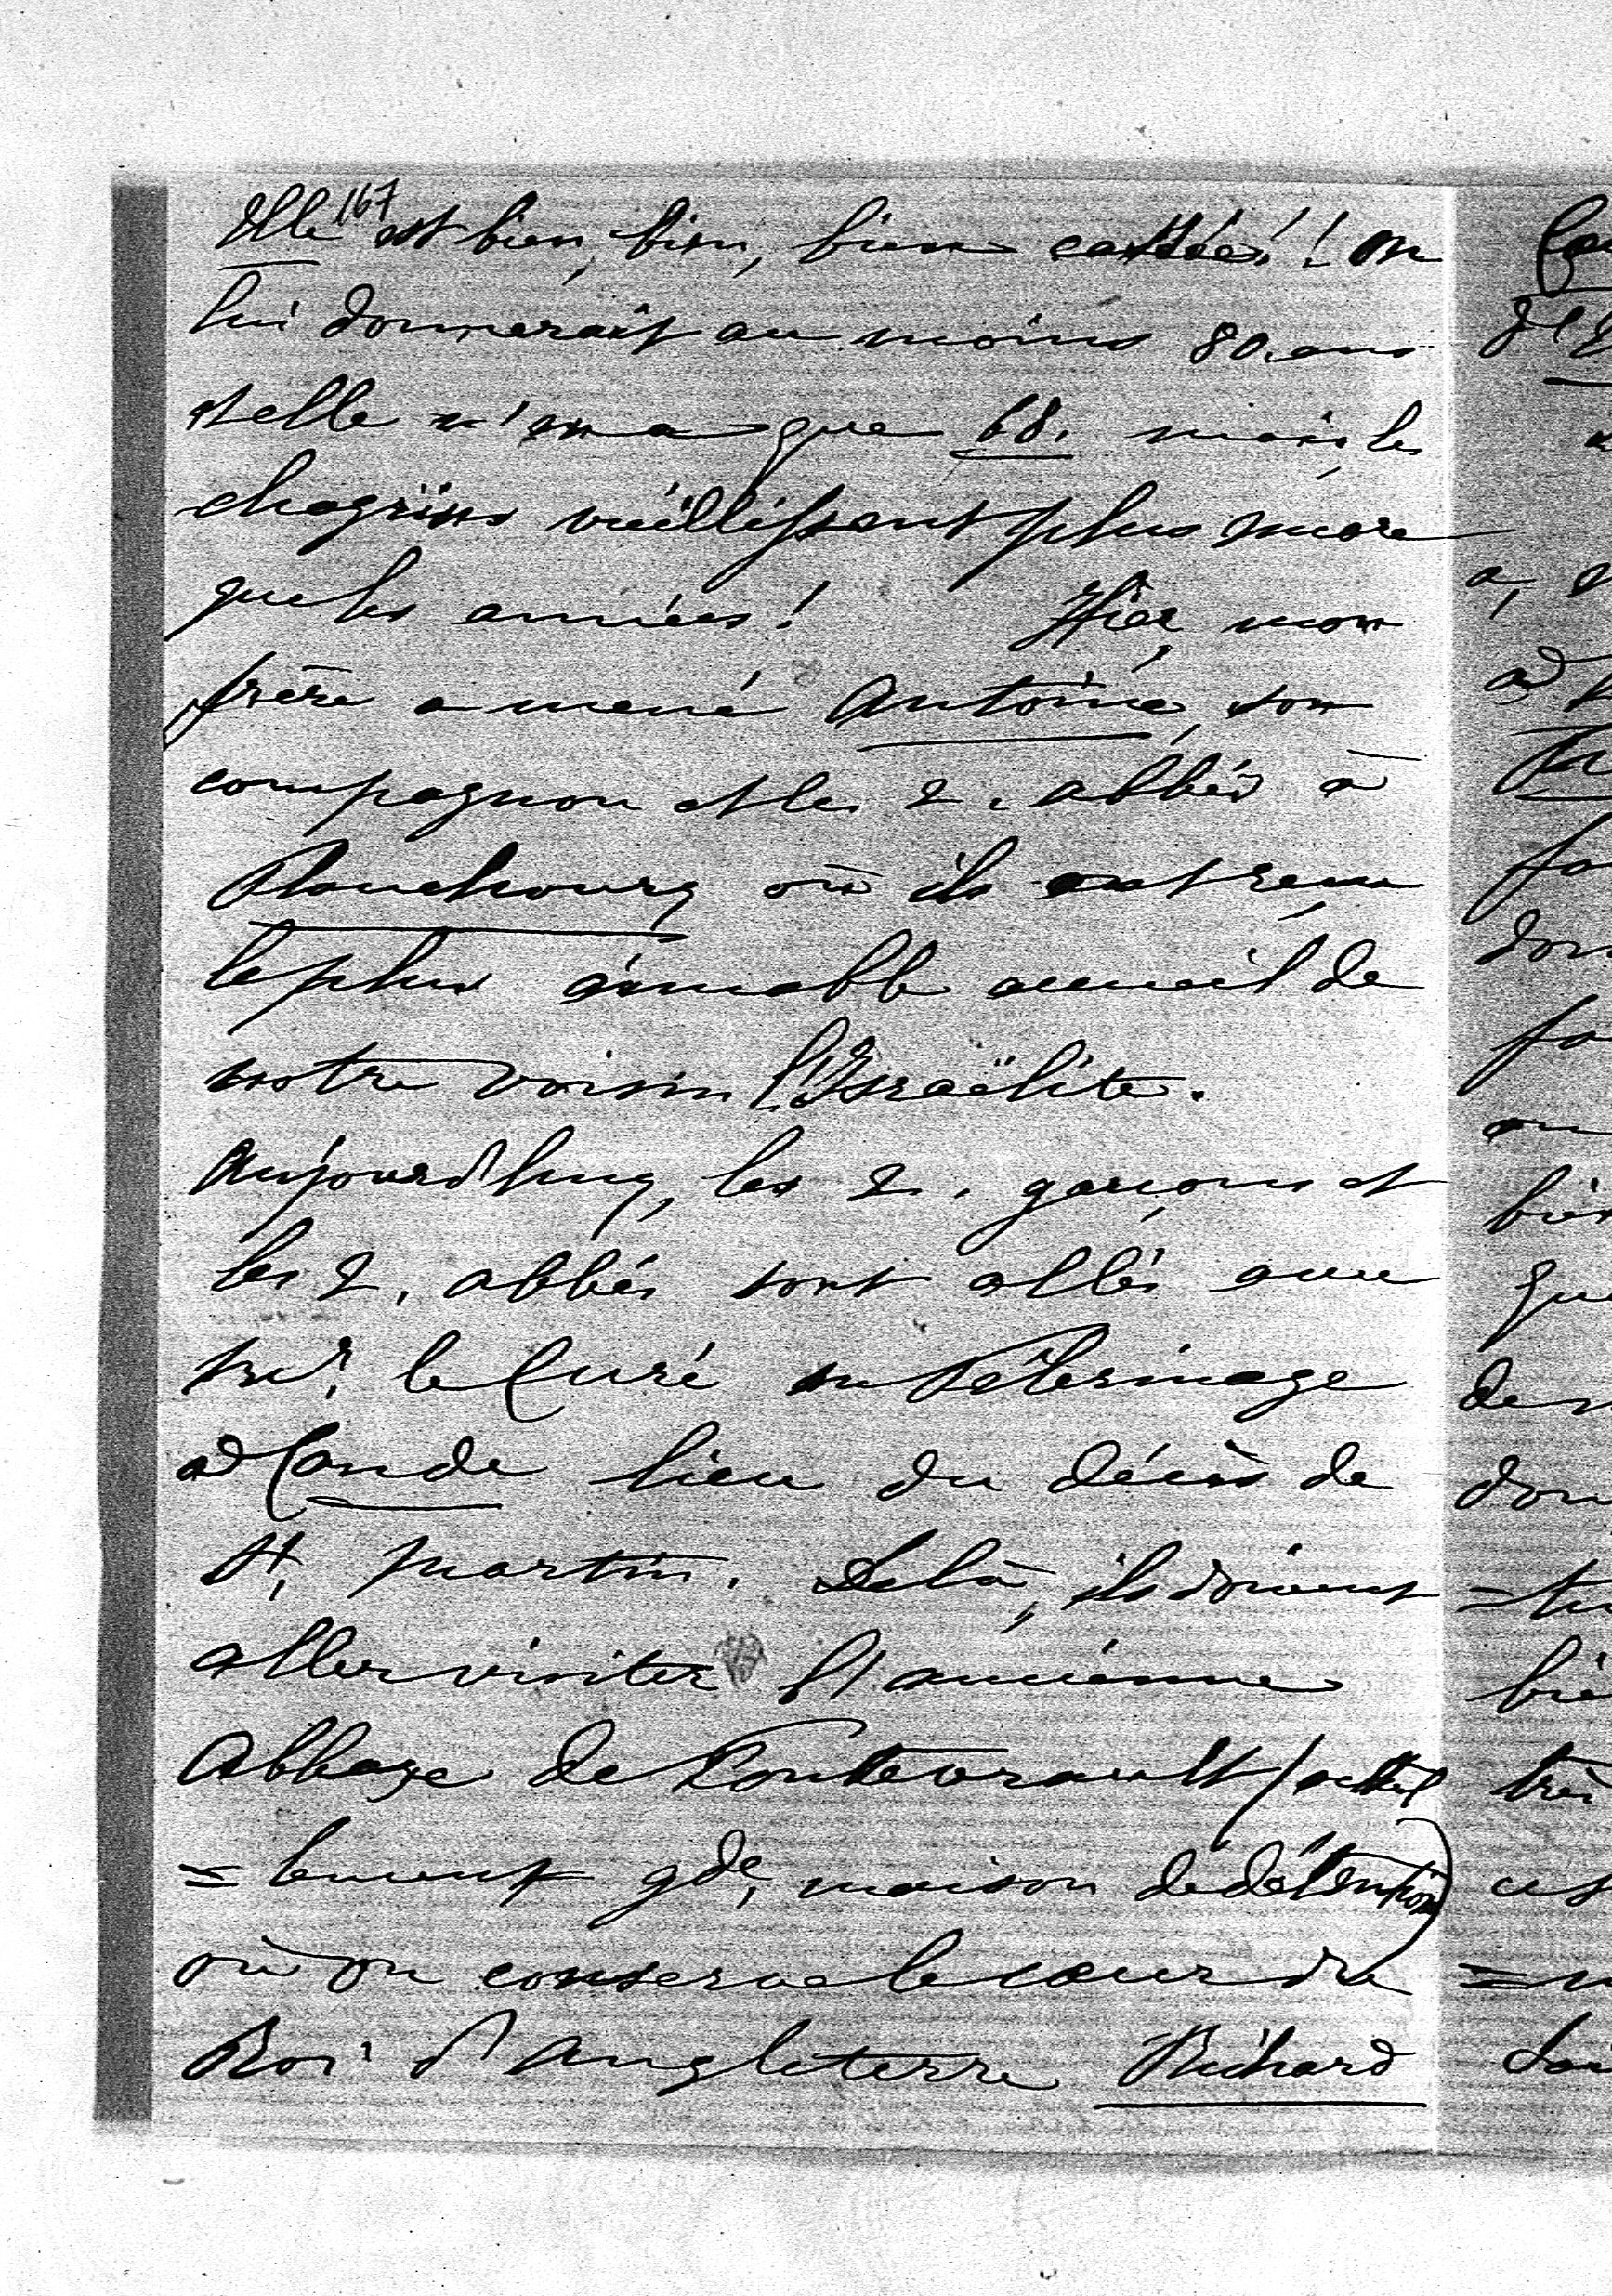 167
Elle est bien, bien, bien cassée!! on
lui donnerait au moins 80. ans
et elle n'en a que 68. mais, les
chagrins vieillissent plus encore
que les années! Hier, mon
frère a mené Antoine, son
compagnon et les 2. abbés à
où ils ont reçu
le plus aimable accueil de
notre voisin l'Israëlite.
Aujourd'huy, les 2. garçons et
les 2. abbés sont allés avec
Mr. le Curé en Pèlerinage
à Cande lieu du décès de
St. Martin. De là, ils doivent
aller visiter l'ancienne
Abbaye de Fontevrault (actuel
=lement gde. maison de détention)
où on conserve le coeur du
Roi d'Angleterre Richard